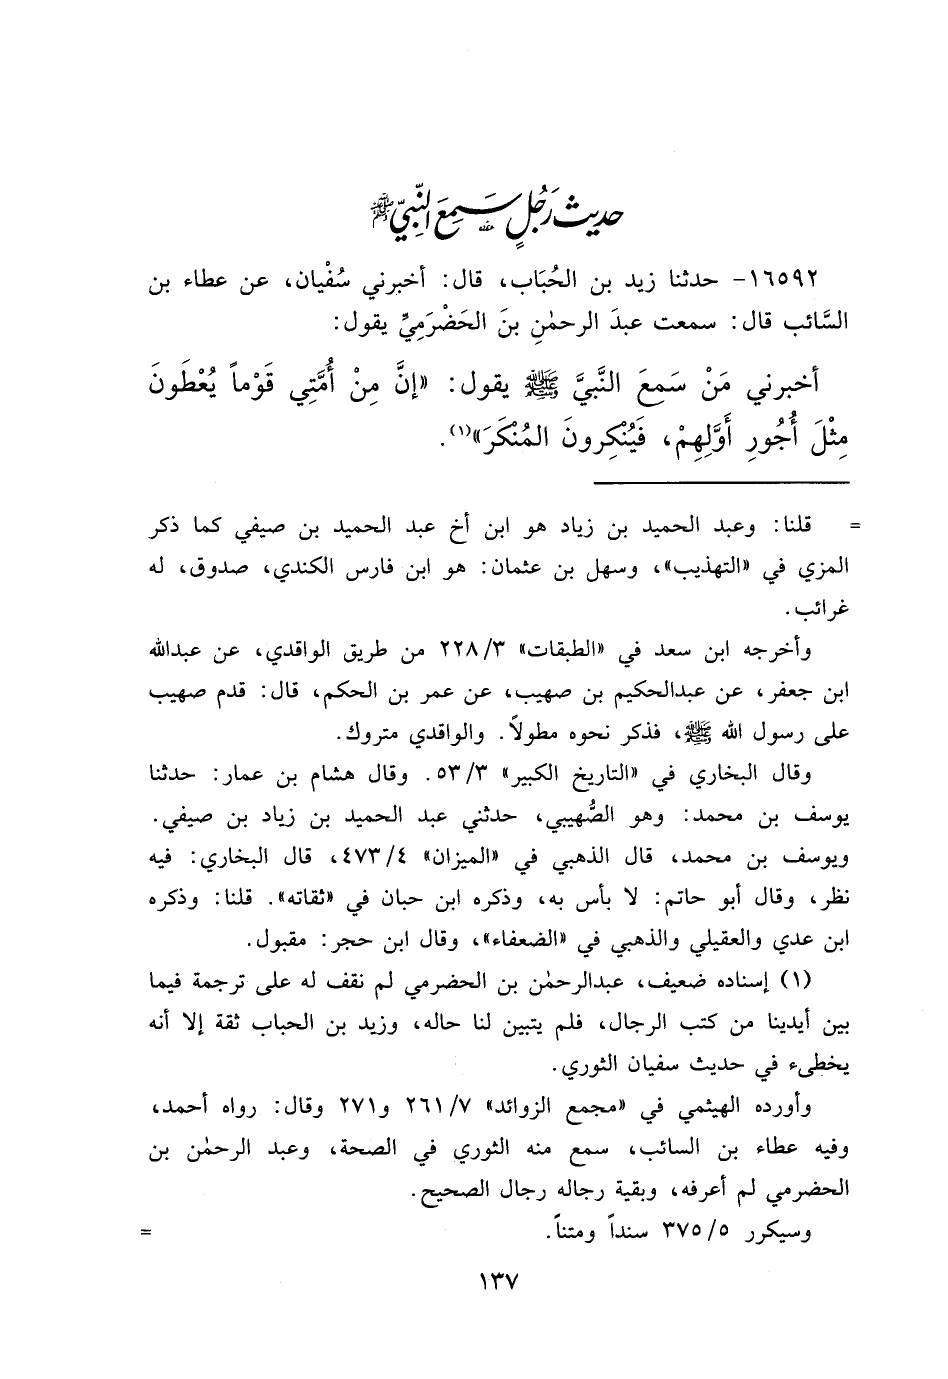 حديث رَجُلٍ سَمِعَ النَّبِيَّ ﷺ
١٦٥٩٢- حدثنا زيد بن الحُبَاب، قال: أخبرني سُفْيان، عن عطاء بن
السَّائب قال: سمعت عبدَ الرحمٰنِ بنَ الحَضْرَمِيِّ يقول:
أخبرني مَنْ سَمِعَ النَّبيَّ ﷺ يقول: «إنَّ مِنْ أُمَّتِي قَوْماً يُعْطَونَ
مِثْلَ أُجُورِ أَوَّلِهِمْ، فَيُنْكِرونَ المُنْكَرَ»(١).
= قلنا: وعبد الحميد بن زياد هو ابن أخ عبد الحميد بن صيفي كما ذكر
المزي في «التهذيب»، وسهل بن عثمان: هو ابن فارس الكندي، صدوق، له
غرائب.
وأخرجه ابن سعد في «الطبقات» ٢٢٨/٣ من طريق الواقدي، عن عبدالله
ابن جعفر، عن عبدالحكيم بن صهيب، عن عمر بن الحكم، قال: قدم صهيب
على رسول الله ﷺ، فذكر نحوه مطولاً. والواقدي متروك.
وقال البخاري في «التاريخ الكبير» ٥٣/٣. وقال هشام بن عمار: حدثنا
يوسف بن محمد: وهو الصُّهيبي، حدثني عبد الحميد بن زياد بن صيفي.
ويوسف بن محمد، قال الذهبي في «الميزان» ٤٧٣/٤، قال البخاري: فيه
نظر، وقال أبو حاتم: لا بأس به، وذكره ابن حبان في «ثقاته». قلنا: وذكره
ابن عدي والعقيلي والذهبي في «الضعفاء»، وقال ابن حجر: مقبول.
(١) إسناده ضعيف، عبدالرحمٰن بن الحضرمي لم نقف له على ترجمة فيما
بين أيدينا من كتب الرجال، فلم يتبين لنا حاله، وزيد بن الحباب ثقة إلا أنه
يخطىء في حديث سفيان الثوري.
وأورده الهيثمي في «مجمع الزوائد» ٢٦١/٧ و٢٧١ وقال: رواه أحمد،
وفيه عطاء بن السائب، سمع منه الثوري في الصحة، وعبد الرحمٰن بن
الحضرمي لم أعرفه، وبقية رجاله رجال الصحيح.
وسيكرر ٣٧٥/٥ سنداً ومتناً. =
١٣٧